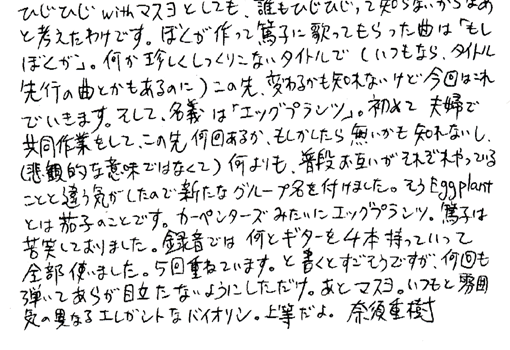 ひじひじ withマスヨとしても、誰もひじひじって知らないからなあ
と考えたわけです。ぼくが作って篤子に歌ってもらった曲は「もし
ぼくが」。何か珍しくしっくりこないタイトルで(いつもなら、タイトル
先行の曲とかもあるのに)この先、変わるかも知れないけど今回はこれ
でいきます。そして、名義は「エッグプランツ」。初めて 夫婦で
共同作業をして、この先何回あるか、もしかしたら無いかも知れないし、
(悲観的な意味ではなくて)何よりも、普段お互いがそれぞれやっている
ことと違う気がしたので新たなグループ名を付けました。そうEggplant
とは茄子のことです。カーペンターズみたいにエッグプランツ。篤子は
苦笑しておりました。録音では 何とギターを4本持っていって
全部使いました。5回重ねています。と書くとすごそうですが、何回も
弾いてあらが目立たないようにしただけ。あとマスヨ。いつもと雰囲
気の異なるエレガントなバイオリン。上等だよ。 奈須重樹